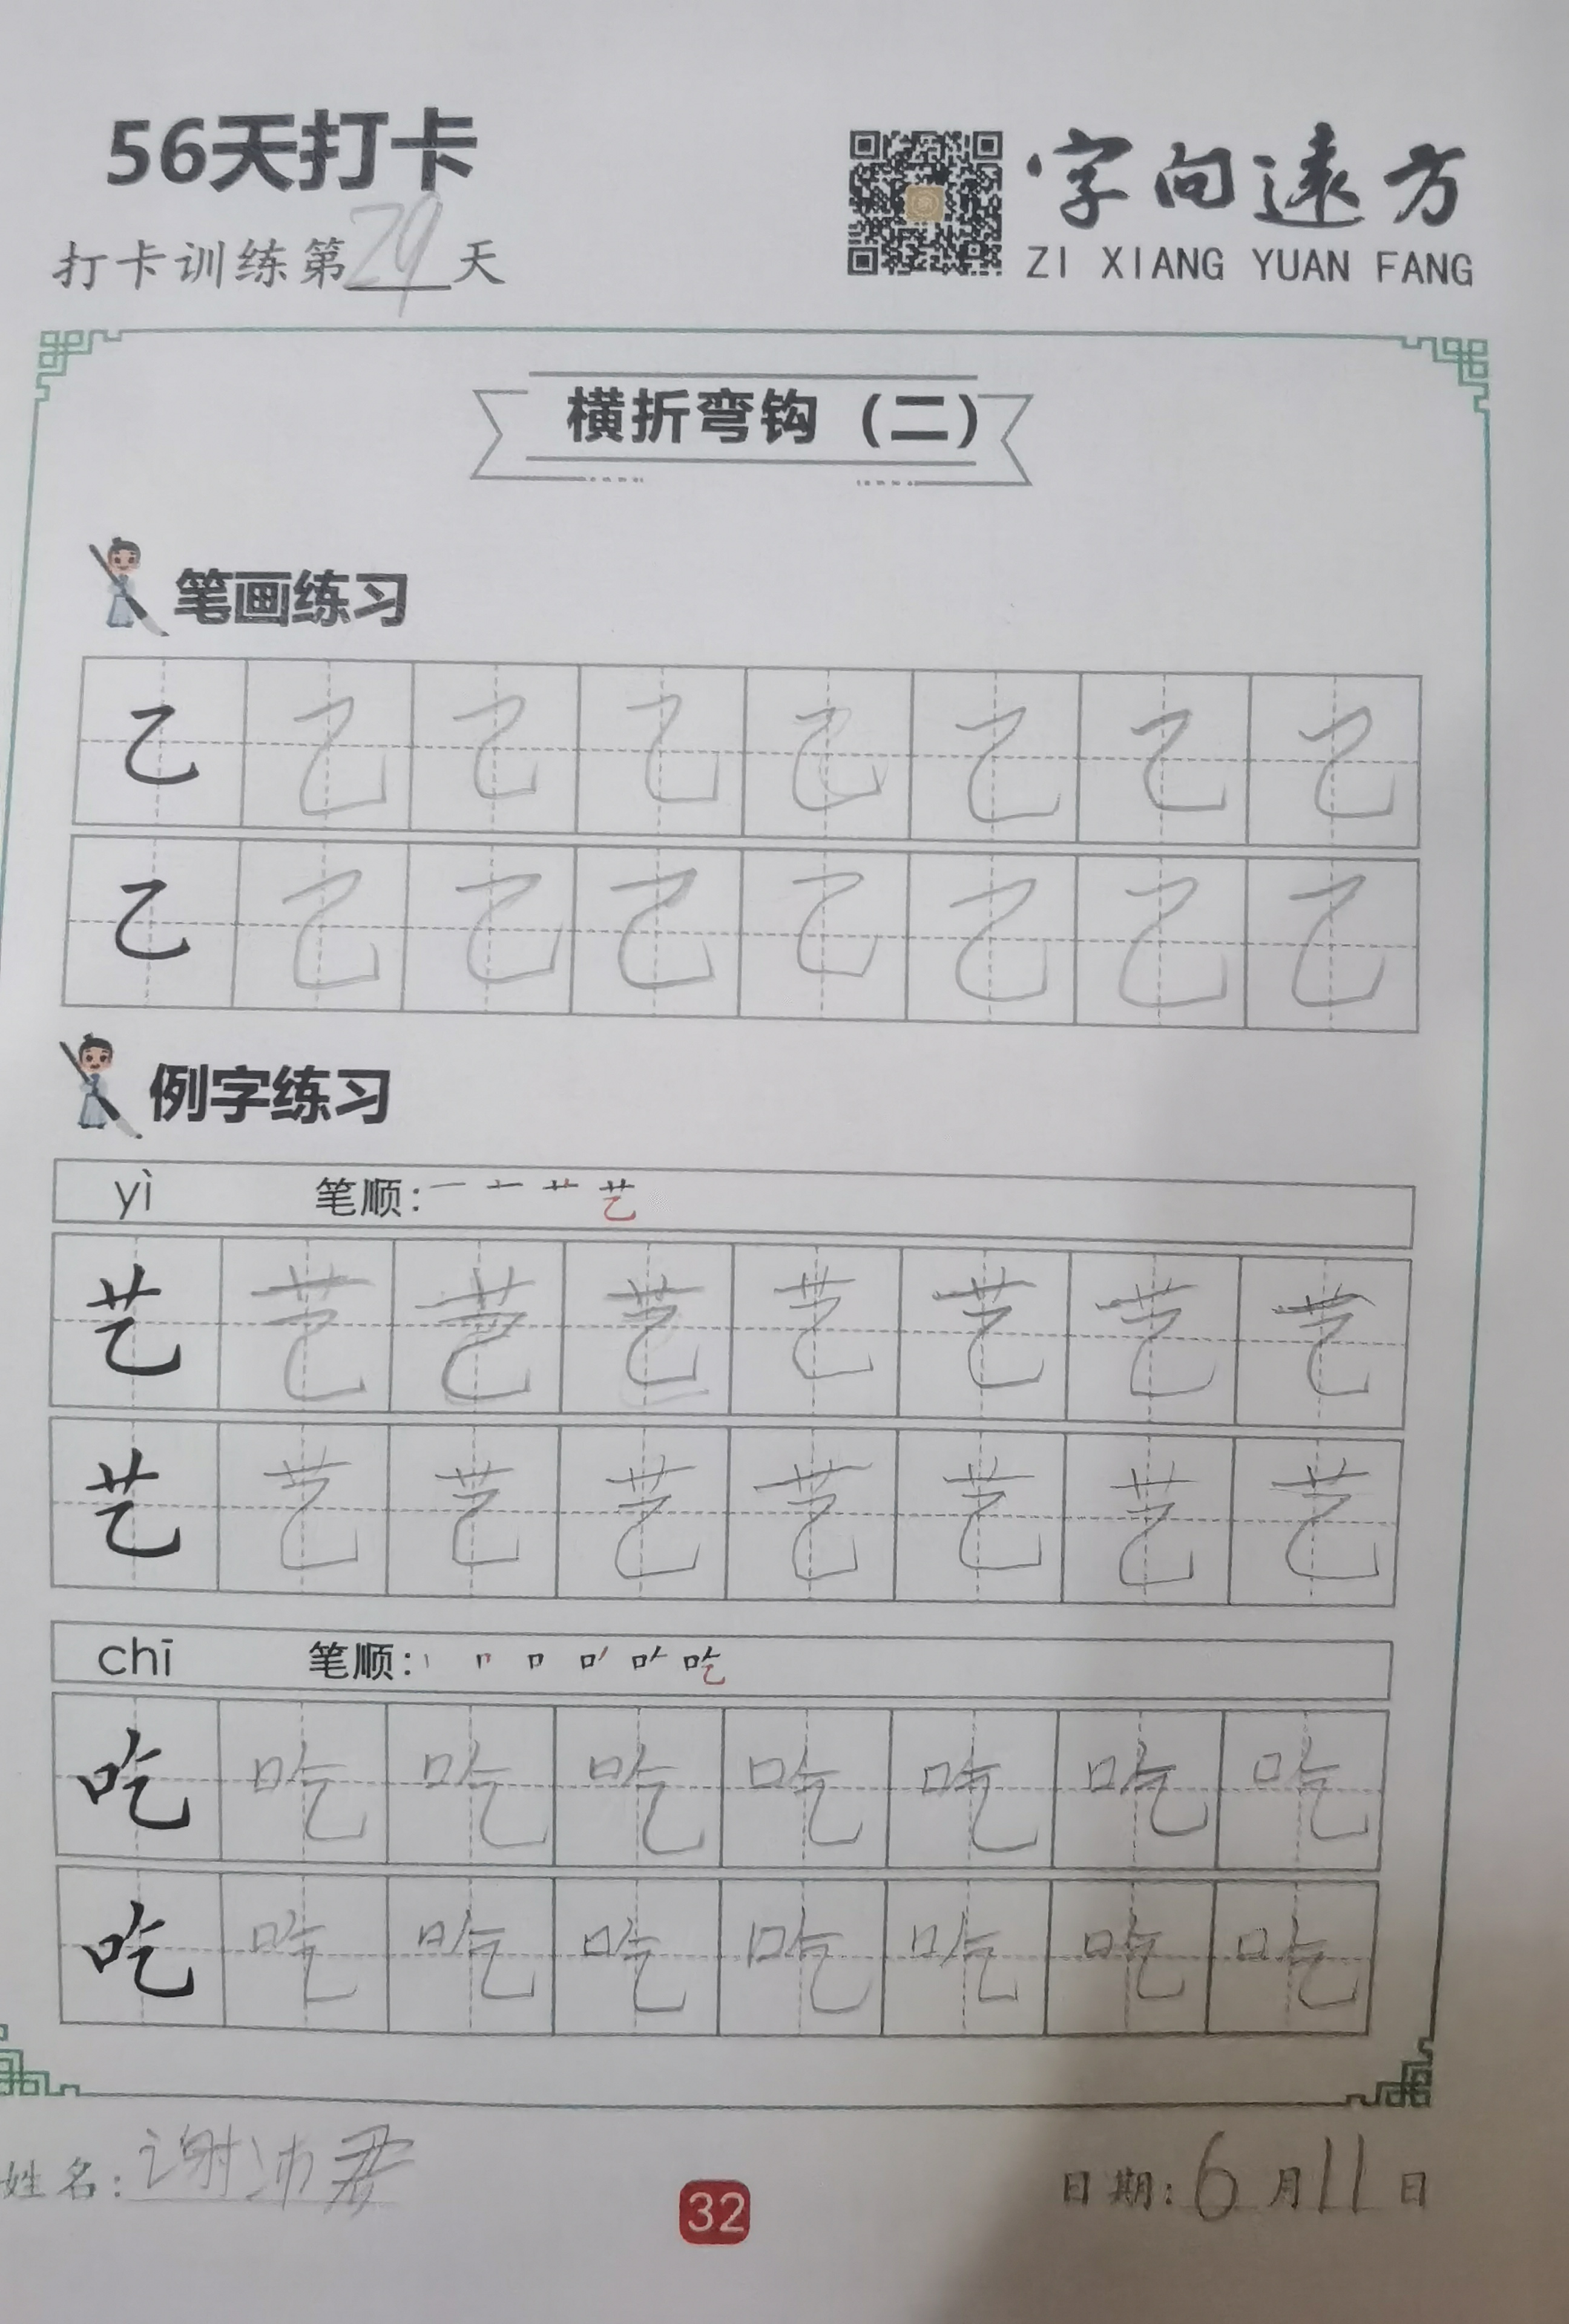 56天打卡
字向遠方
打卡训练第29天
ZI XIANG YUAN FANG
横折弯钩（二）
笔画练习
乙 乙 乙 乙 乙 乙 乙 乙
乙 乙 乙 乙 乙 乙 乙 乙
例字练习
yì 笔顺: 一 艹 艺
艺 艺 艺 艺 艺 艺 艺 艺
艺 艺 艺 艺 艺 艺 艺 艺
chī 笔顺: 丨 冂 口 吃
吃 吃 吃 吃 吃 吃 吃 吃
吃 吃 吃 吃 吃 吃 吃 吃
姓名: 谢沛君
32
日期: 6月11日